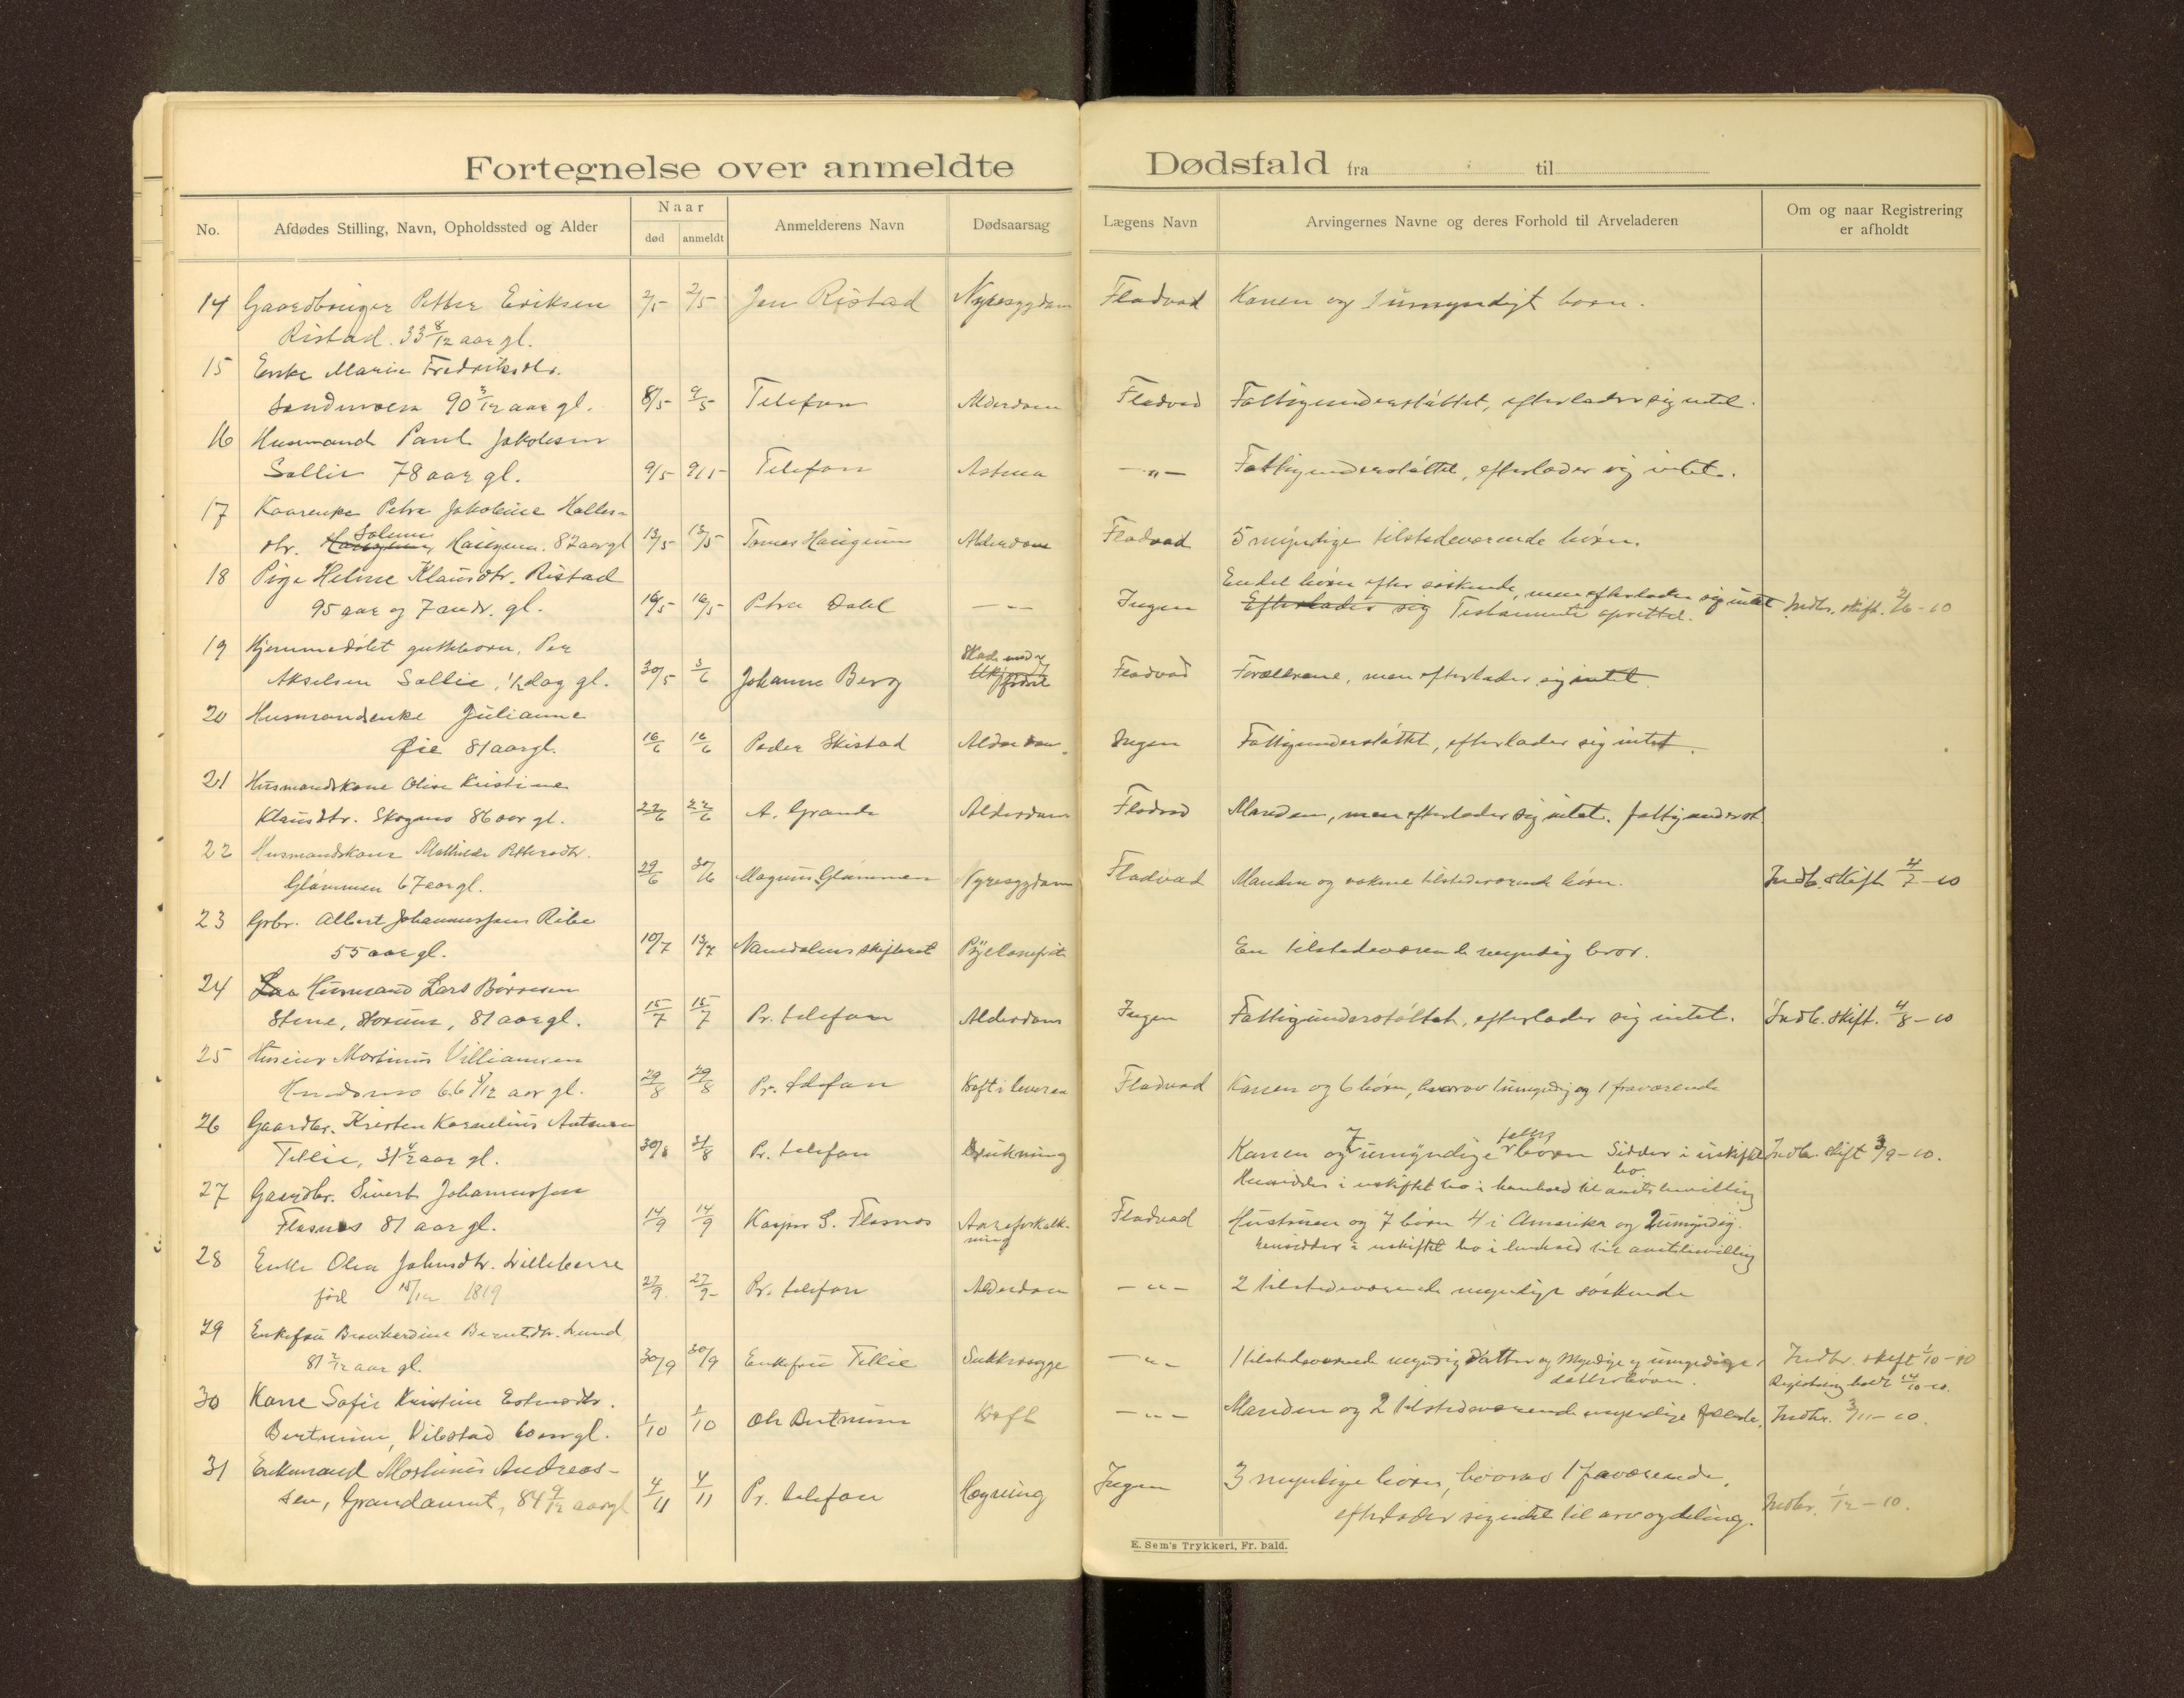 Fortegnelse over anmeldte Dødsfald fra til
No. Afdødes Stilling, Navn, Opholdssted og Alder Naar død anmeldt Anmelderens Navn Dødsaarsag Lægens Navn Arvingernes Navne og deres Forhold til Arveladeren Om og naar Registrering er afholdt
14 Gaardbruger Petter Eriksen 2/5 2/5 Jen Ristad Nyresygdom Fladvad Konen og 1 umyndigt barn.
Ristad. 33 8/12 aar gl.
15 Enke Marie Fredriksdtr.
90 3/12 aar gl. 8/5 9/5 Telefon Alderdom Fladvad Fattigunderstøttet, efterlader sig intet.
16 Husmand Paul Jakobsen
Sollie 78 aar gl. 9/5 9/5 Telefon Astma —„— Fattigunderstøttet, efterlader sig intet.
17 Kaarenke Petra Jakobine Haller-
dtr. Solum Haugum. 82 aar gl 13/5 13/5 Tomas Haugum Alderdom Fladvad 5 myndige tilstedeværende børn.
18 Pige Helene Klausdtr. Ristad Endel børn efter søskende, men efterlader sig intet
95 aar og 7 andr. gl. 16/5 16/5 Petra Dahl — — Ingen Efterlader sig Testamente oprettet. Indb. skift. 2/6 - 10
19 Hjemmedøbt guttebarn, Per Skade med
Akselsen Sollie, 1/2 dag gl. 30/5 3/6 Johanne Berg Fladvad Forældrene, men efterlader sig intet.
20 Husmandsenke Julianne
Øie 81 aar gl. 16/6 16/6 Peder Skistad Alderdom. Ingen Fattigunderstøttet, efterlader sig intet.
21 Husmandskone Olise Kristine
Klausdtr. Skogmo 86 aar gl. 22/6 22/6 A. Grande Alderdom Fladvad Manden, men efterlader sig intet. fattigunderst.
22 Husmandskone Mathilde Pettersdtr.
Glømmen 67 aar gl. 29/6 30/6 Magnus Glømmen Nyresygdom Fladvad Manden og voksne tilstedeværende børn. Indb. skift. 4/7 - 10
23 Gbr. Albert Johannessen Ribe
55 aar gl. 10/7 13/7 Namdalens skifteret En tilstedeværende myndig bror.
24 Husmand Lars Børresen
Stene, 81 aar gl. 15/7 15/7 Pr. telefon Alderdom Ingen Fattigunderstøttet, efterlader sig intet. Indb. skift. 4/8 - 10
25 Huseier Martinus Villiamsen
66 aar gl. 29/8 29/8 Pr. telefon Kræft i leveren Fladvad Konen og 6 børn, hvorav 1 umyndig og 1 fraværende
26 Gaardbr. Kristen Kornelius Antonsen
Tellie, 31 aar gl. 30/8 31/8 Pr. telefon Drukning Konen og 7 umyndige fælles børn Sidder i uskiftet bo. Indb. skift 3/9 - 10.
Hensidder i uskiftet bo i henhold til amtsbevilling
27 Gaardbr. Sivert Johannessen
Flasnes 81 aar gl. 14/9 14/9 Kaspar S. Flasnes Aareforkalkning Fladvad Hustruen og 7 børn 4 i Amerika og 2 umyndig.
hensidder i uskiftet bo i henhold til amtsbevilling
28 Enke Olea Johnsdtr. Lilleberre
fød 15/12 1819 27/9 27/9 Pr. telefon Alderdom —„— 2 tilstedeværende myndige søskende
29 Enkefru Bernhardine Berntsdtr. Lund
81 2/12 aar gl. 30/9 30/9 Enkefru Tellie Sukkersyge —„— 1 tilstedeværende myndig datter og Myndige og umyndige datterbørn. Indb. skift 1/10 - 10
Registrering holdt 14/10 - 10.
30 Kone Sofie Kristine Estensdtr.
Bertnum, Vibstad 60 aar gl. 1/10 1/10 Ole Bertnum Kræft —„— Manden og 2 tilstedeværende myndige Indb. 3/11 - 10.
31 Enkemand Mortinus Andreas-
sen, Grandaunet, 84 9/12 aar gl 4/11 4/11 Pr. telefon Hægning Ingen 3 myndige børn, hvorav 1 fraværende,
efterlader sig intet til arv og deling. Indb. 1/12 - 10.
E. Sem's Trykkeri, Fr. hald.